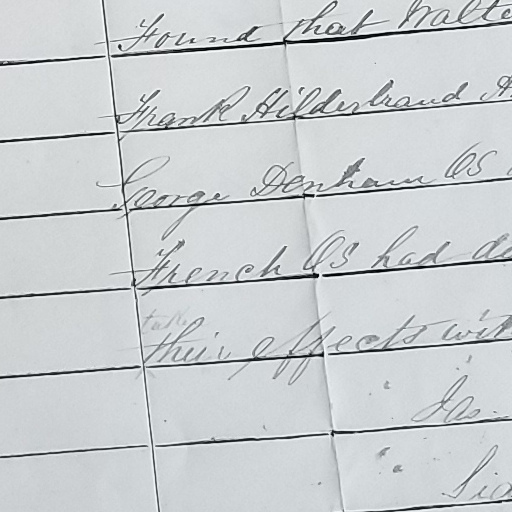 Found that Walte
Frank Hilderbrand A
George Denham OS
French OS had de
take
their effects wit
Jas
Sid